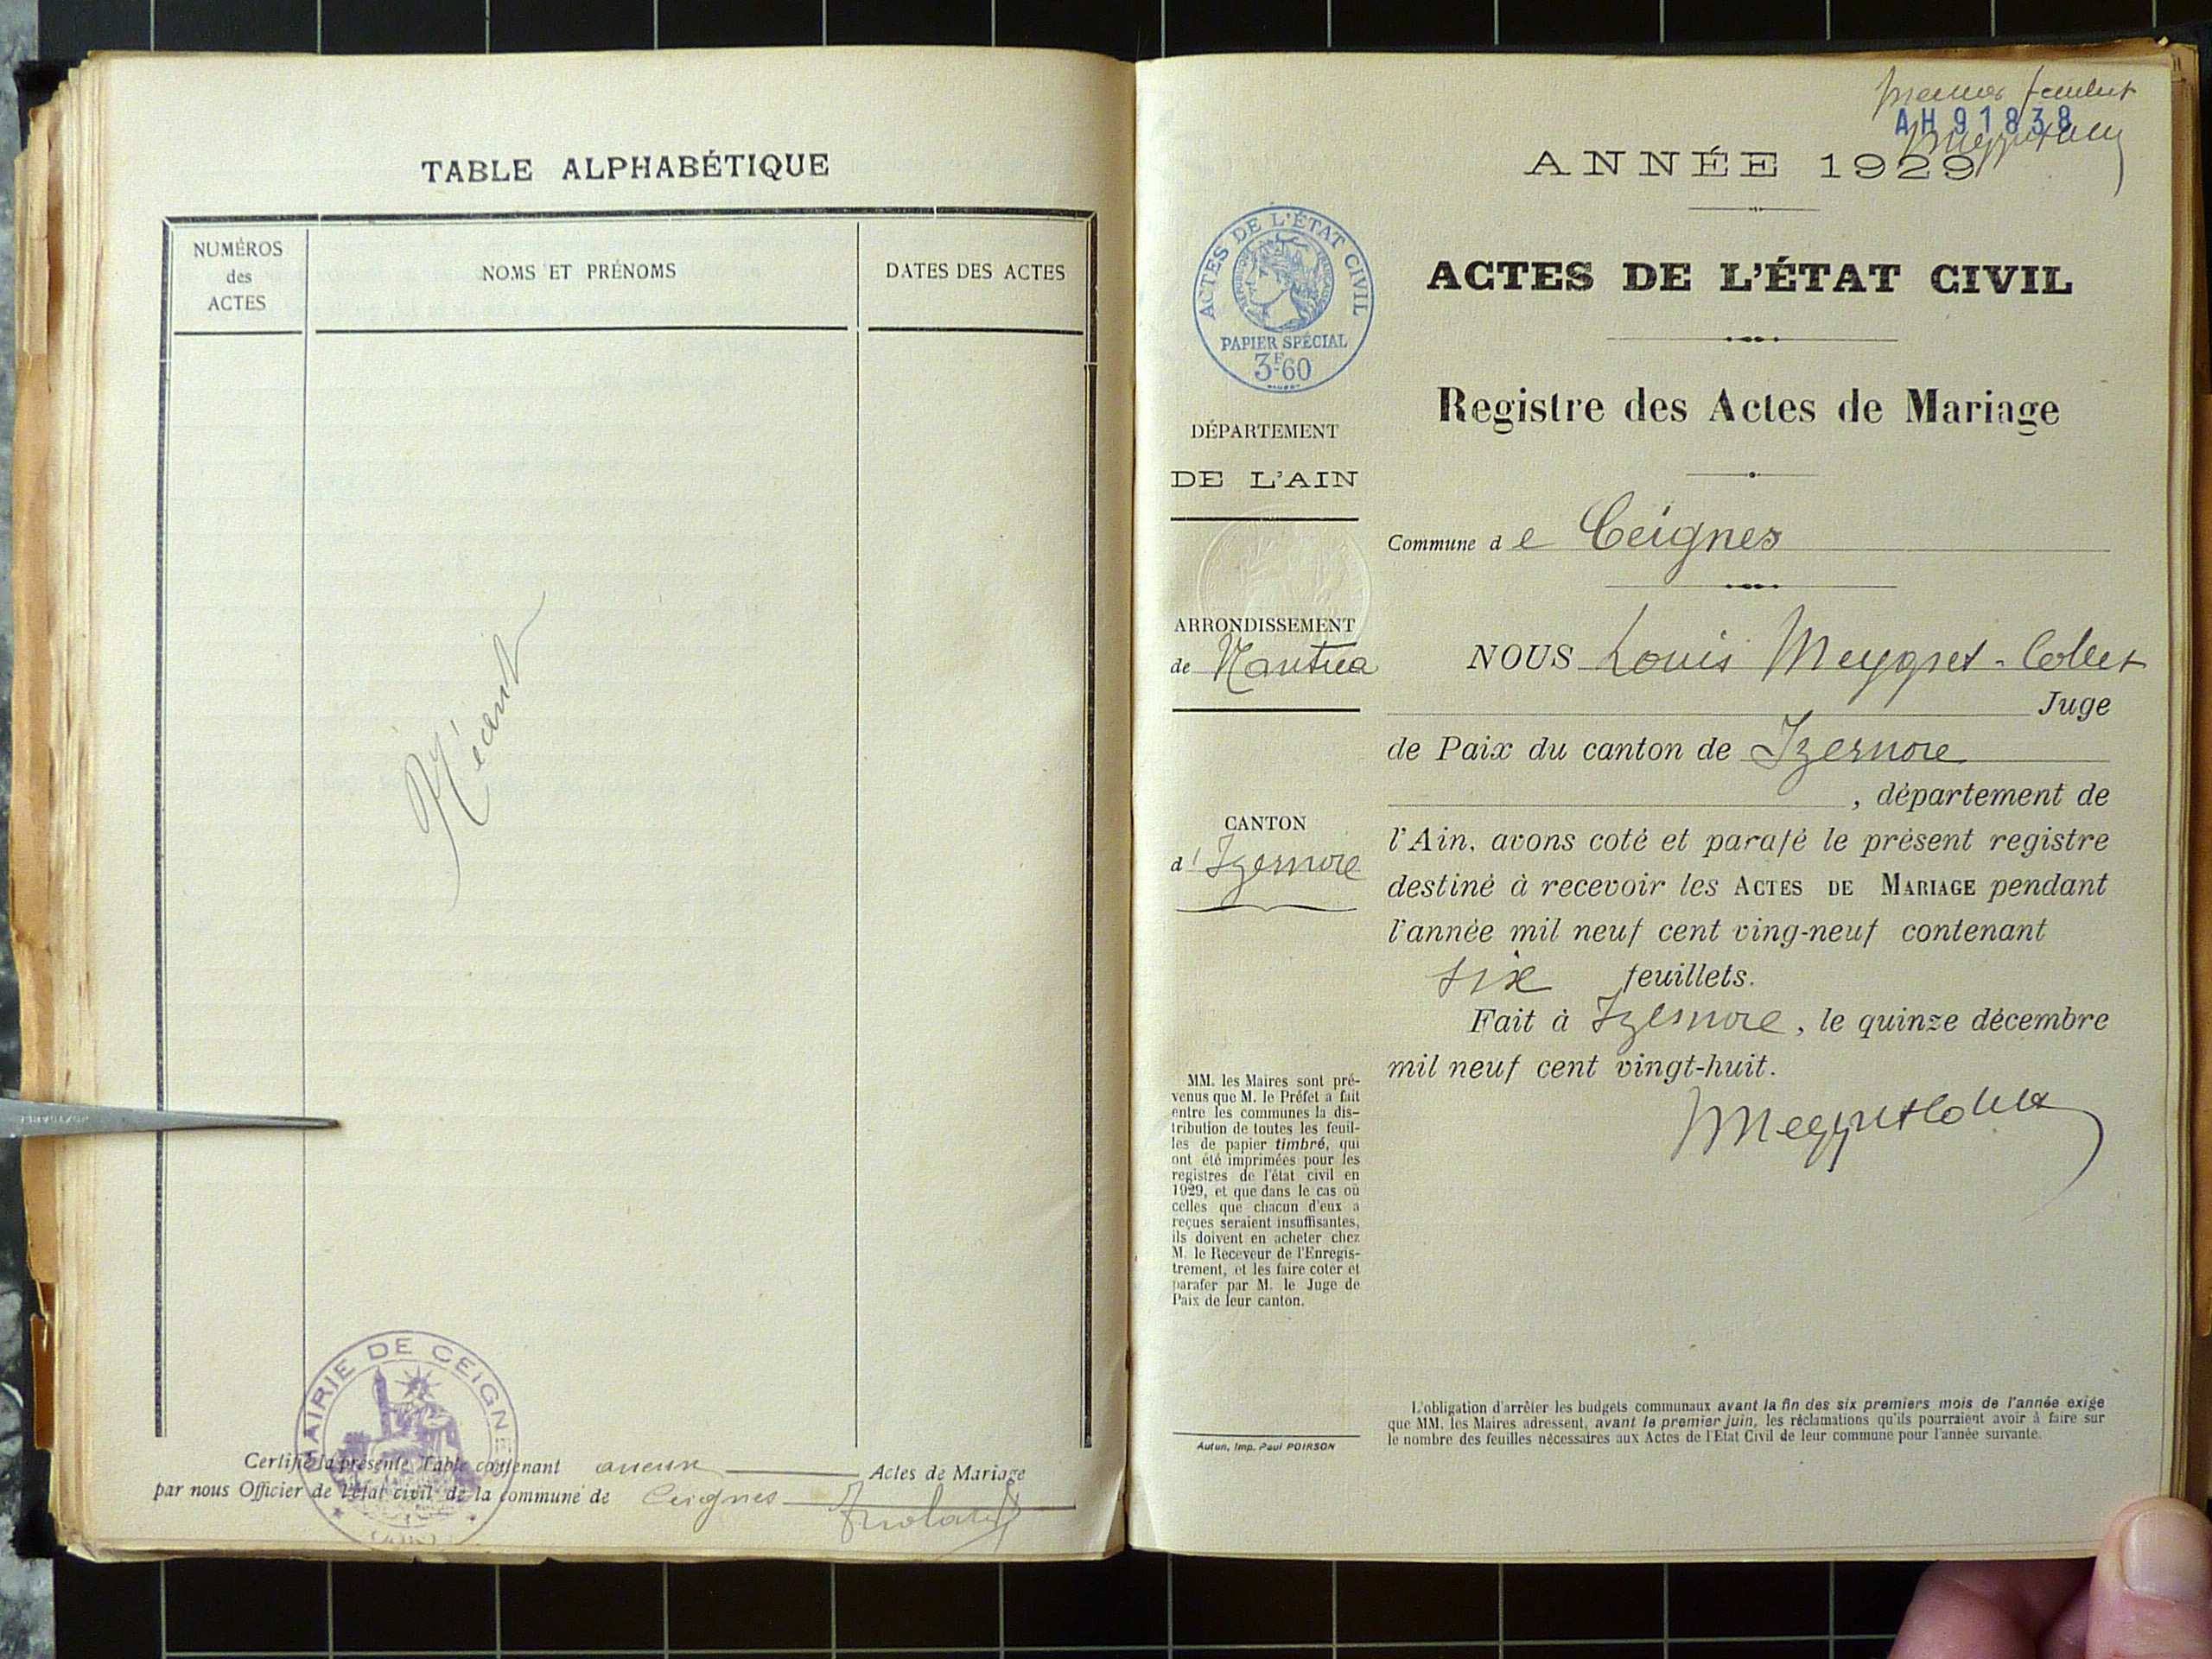 TABLE ALPHABÉTIQUE
NUMÉROS
des
ACTES
NOMS ET PRÉNOMS
DATES DES ACTES
Néant
MAIRIE DE CEIGNES
Certifié la présente Table contenant aucun Actes de Mariage
par nous Officier de l'état civil de la commune de Ceignes
premier feuillet
AH 91838
ANNÉE 1929
ACTES DE L'ÉTAT CIVIL
RÉPUBLIQUE FRANÇAISE
PAPIER SPÉCIAL
3F60
ACTES DE L'ÉTAT CIVIL
Registre des Actes de Mariage
DÉPARTEMENT
DE L'AIN
Commune de Ceignes
ARRONDISSEMENT
de Nantua
NOUS Louis Meygret-Collet
Juge
de Paix du canton de Izernore
, département de
CANTON
d'Izernore
l'Ain, avons coté et parafé le présent registre
destiné à recevoir les ACTES DE MARIAGE pendant
l'année mil neuf cent ving-neuf contenant
six feuillets.
Fait à Izernore, le quinze décembre
mil neuf cent vingt-huit.
MeygretCollet
MM. les Maires sont pré-
venus que M. le Préfet a fait
entre les communes la dis-
tribution de toutes les feuil-
les de papier timbré, qui
ont été imprimées pour les
registres de l'état civil en
1929, et que dans le cas où
celles que chacun d'eux a
reçues seraient insuffisantes,
ils doivent en acheter chez
M. le Receveur de l'Enregis-
trement, et les faire coter et
parafer par M. le Juge de
Paix de leur canton.
Autun, Imp. Paul POIRSON
L'obligation d'arrêter les budgets communaux avant la fin des six premiers mois de l'année exige
que MM. les Maires adressent, avant le premier juin, les réclamations qu'ils pourraient avoir à faire sur
le nombre des feuilles nécessaires aux Actes de l'Etat Civil de leur commune pour l'année suivante.